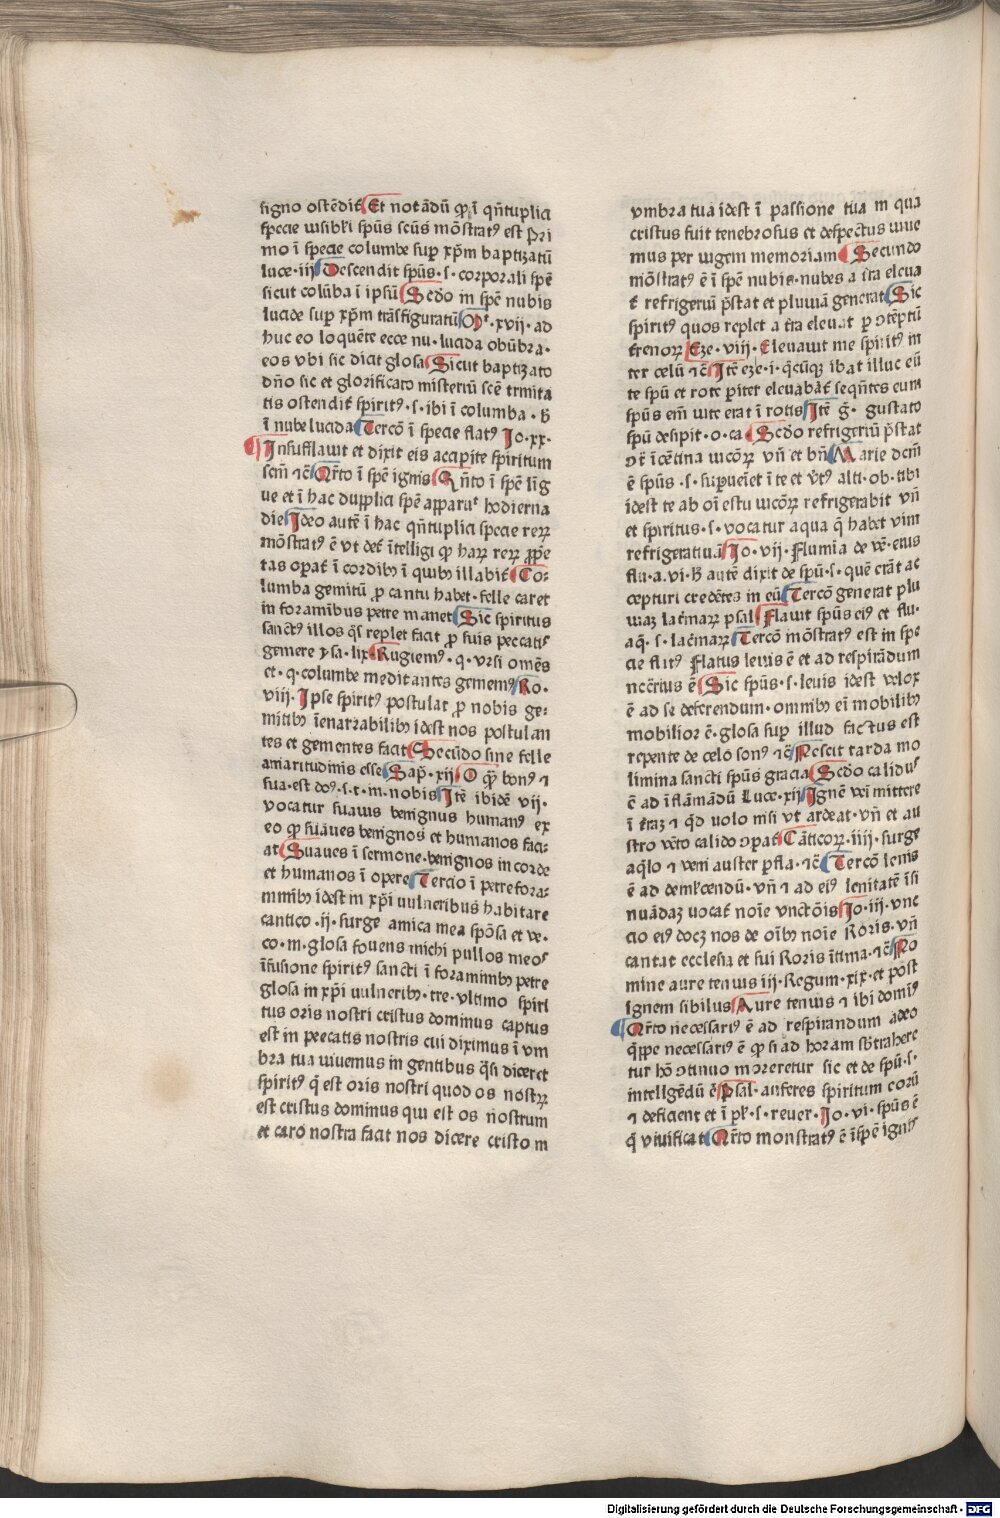 signo ostēdit᷒ Et notādū ꝙ ī qn̄tuplici
specie visibi̅li sp̄us scūs mōstratꝰ est Pri
mo ī specie columbe sup̱ xp̄m baptizatū
luce·iii Descendit sp̄us·s·corporali spē
sicut colūba ī ipsū Scd̄o in spē nubis
lucide sup̱ xp̄m trāsfiguratū Mᵗ·xvii·ad
huc eo loquēte ecce nu·lucida obūbra·
eos vbi sic dicit glosa Sicut baptizato
dn̄o sic et glorificato misteriū scē trinita
tis ostendit᷒ spiritꝰ·s·ibi ī columba·h̄
ī nube lucida Tercō ī specie flatꝰ Jo·xx·
Insufflauit et dixit eis accipite spiritum
scm̄ ⁊c̄ Qr̄to ī spē ignis Qn̄to ī spē līg
ue et ī hac dupplici spē apparuᵗ hodierna
die Ideo autē ī hac qn̄tuplici specie reꝝ
mōstratꝰ ē vt det᷒ ītelligi ꝙ haꝝ reꝝ ꝓpͥe
tas oꝑat᷒ ī cordibꝫ ī quibꝫ illabit᷒ Co-
lumba gemitū ꝓ cantu habet·felle caret
in foraminibus petre manet Sic spiritus
sanctꝰ illos qͦs replet facit ꝓ suis peccatis
gemere ysa·lix Rugiemꝰ·q·vrsi omēs
et·q·columbe meditantes gememꝰ Ro·
viii·Ipse spiritꝰ postulat ꝓ nobis ge-
mitibꝫ īenarrabilibꝫ idest nos postulan
tes et gementes facit Secūdo sine felle
amaritudinis esse Sap̄·xii O qͣꝫ bonꝰ ⁊
sua·est doꝰ·s·t·m·nobis Itē ibidē vii·
vocatur suauis benignus humanꝰ ex
eo ꝙ suaues benignos et humanos faci-
at Suaues ī sermone·benignos in corde
et humanos ī opere Tercio ī petre fora-
minibꝫ idest in xp̄i vulneribus habitare
cantico·ii·surge amica mea spōsa et ve·
co·m·glosa fouens michi pullos meos
īfusione spiritꝰ sancti ī foraminibꝫ petre
glosa in xp̄i vulneribꝫ·tre·vltimo spiri
tus oris nostri cristus dominus captus
est in peccatis nostris cui diximus ī vm
bra tua viuemus in gentibus qͣsi diceret
spiritꝰ qͥ est oris nostri quod os nostꝝ
est cristus dominus qui est os nostrum
et caro nostra facit nos dicere cristo in
vmbra tua idest ī passione tua in qua
cristus fuit tenebrosus et despectus viue
mus per iugem memoriam Secundo
mōstratꝰ ē ī spē nubis·nubes a t̄ra eleua
t᷒ refrigeriū p̄stat et pluuiā generat Sic
spiritꝰ quos replet a t̄ra eleuat ꝑ ↄtēptū
t̄renoꝝ Eze·viii·Eleuauit me spiritꝰ in
ter celū ⁊c̄ Itē eze·i·qͦcūqꝫ ibat illuc eū
te spū et rote ꝑiter eleuabāt᷒ seqn̄tes eum
spūs em̄ vite erat ī rotis Itē gͥ·gustato
spū desipit·o·ca Scd̄o refrigeriū p̄stat
ↄt͛ īcētiua vicōꝝ vn̄ et bn̄ Marie dcm̄
ē spūs·s·sup̱ueiet ī te et v̓tꝰ alti·ob·tibi
idest te ab oī estu vicōꝝ refrigerabit vn̄
et spiritus·s·vocatur aqua qͥ habet vim
refrigeratiuā Jo·vii·Flumīa de vē·eius
flu·a·vi·h̄ autē dixit de spū·s·quē erāt ac
cepturi credētes in eū Tercō generat plu
uiaꝫ lacͥmaꝝ psal Flauit spūs eiꝰ et flu·
aq̄·s·lacͥmaꝝ Tercō mōstratꝰ est in spe
cie flatꝰ Flatus leuis ē et ad respirādum
ncc̄rius ē Sic spūs·s·leuis idest velox
ē ad se deferendum·omnibꝫ em̄ mobilibꝫ
mobilior ē·glosa sup̱ illud factus est
repente de celo sonꝰ ⁊c̄ Nescit tarda mo
limina sancti spūs gracia Scd̄o calidus
ē ad īflāmādū Luce·xii Ignē veni mittere
ī t̄raꝫ ⁊ qͥd volo nisi vt ardeat·vn̄ et au
stro vēto calido ↄpat᷒ Cāticoꝝ·iiii·surge
aq̓lo ⁊ veni auster ꝑfla·⁊c̄ Tercō lenis
ē ad demlcendū·vn̄ ⁊ ad eiꝰ lenitatē īsi
nuādaꝫ vocat᷒ noīe vnctōis Jo·iii·vnc
cio eiꝰ docꝫ nos de oībꝫ noīe Roris·vn̄
cantat ecclesia et sui Roris ītima·⁊c̄ No
mine aure tenuis iii·Regum·xix·et post
ignem sibilus Aure tenuis ⁊ ibi domīꝰ
Qr̄to necessariꝰ ē ad respirandum adeo
qͥppe necessariꝰ ē ꝙ si ad horam sb̄trahere
tur hō ↄtinuo moreretur sic et de spū·s·
intelligēdū ē Psal·auferes spiritum eorū
⁊ deficient et ī pl̓·s·reuer·Jo·vi·spūs ē
qͥ viuificat Qr̄to monstratꝰ ē ī spē ignis
Digitalisierung gefördert durch die Deutsche Forschungsgemeinschaft - DFG